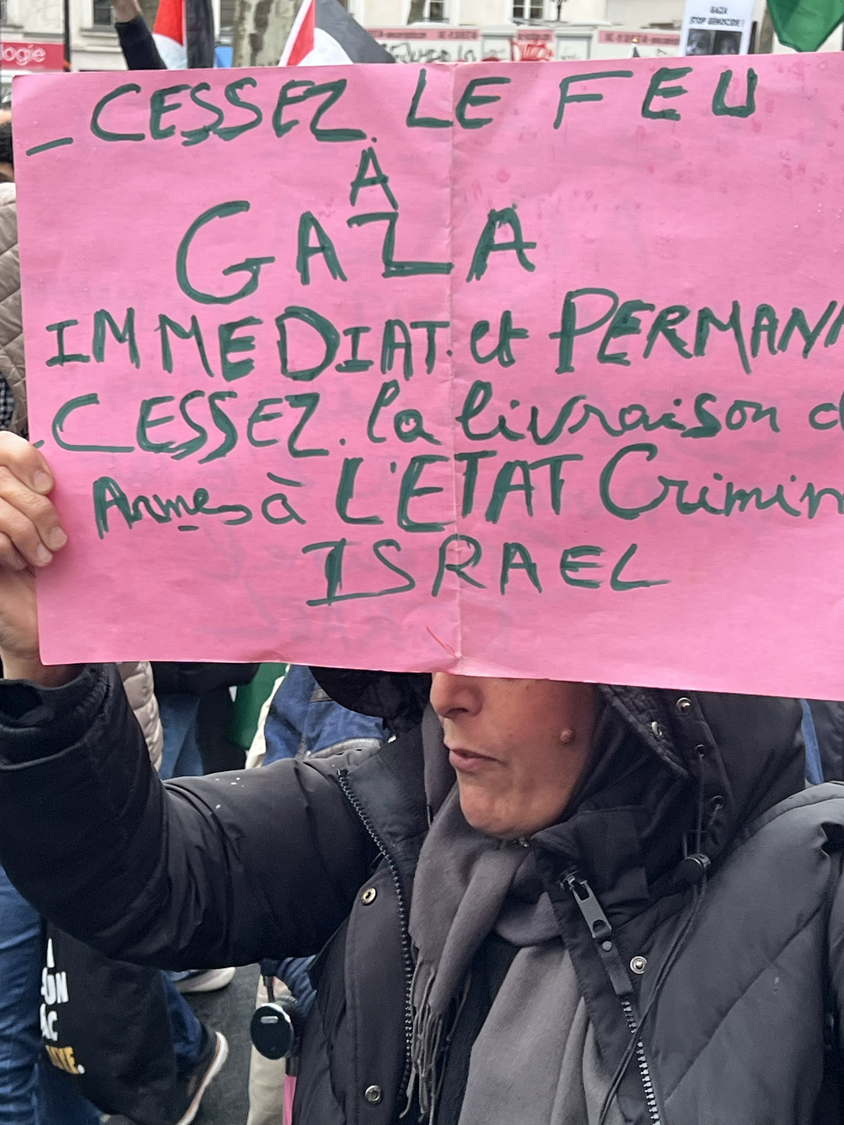 ologie
GAZA
STOP GENOCIDE!
_ CESSEZ. LE FEU
À
GAZA
IMMEDIAT. et PERMAN
. CESSEZ. la livraison d
Armes à L'ETAT Crimin
ISRAEL